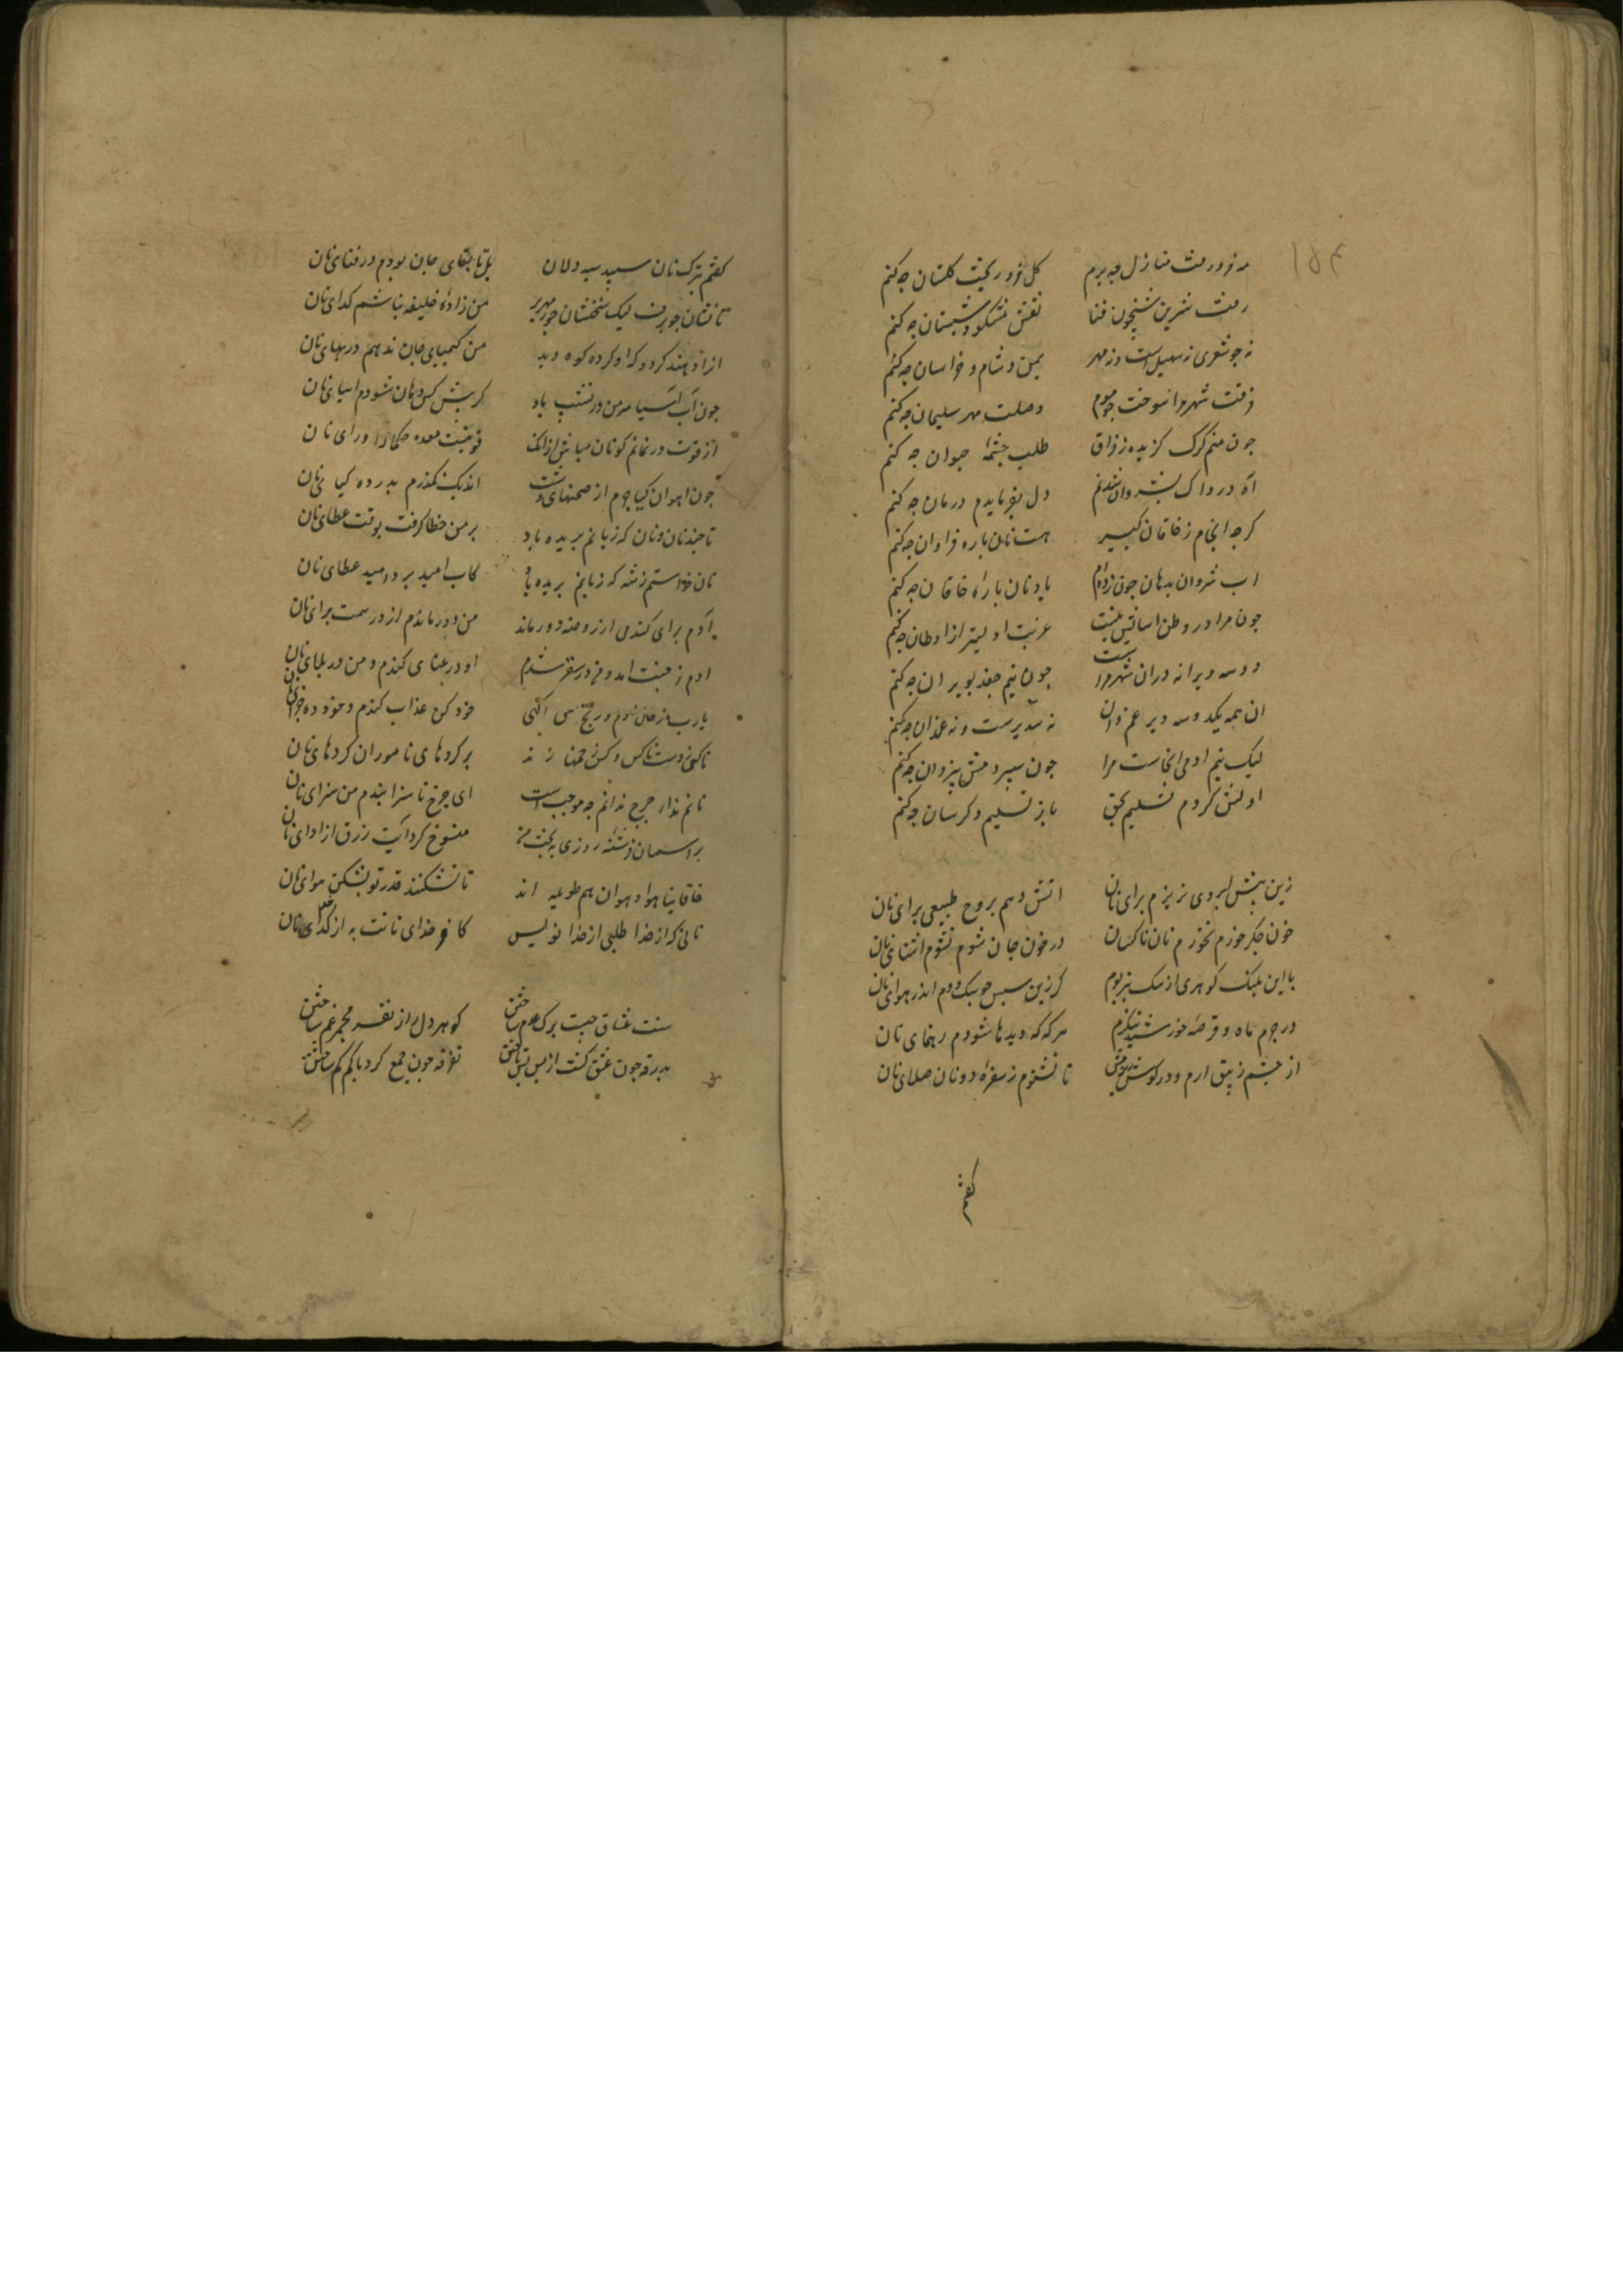 ۱۵۴
مه فرو رفت منازل چه برم گل فرو ریخت گلستان چه کنم
رفت شیرین شبیخون فنا نقش مشکو و شبستان چه کنم
نه جو شعری نه سهیل است و نه مهر یمن و شام و خراسان چه کنم
فرقت شهر مرا سوخت جو موم وصلت مهر سلیمان جه کنم
جون منم کرک کزیده ز فراق طلب جشمهٔ حیوان جه کنم
آه درداک بشروان شدنم دل بفرمایدم درمان جه کنم
کرجه انجام ز خاقان کبیر هست نان باره فراوان جه کنم
اب شروان بدهان جون زده‌ام یاد نان بارهٔ خاقان جه کنم
جون مرا در وطن اسایش نیست غربت اولیتر از اوطان جه کنم
دو سه ویرانه دران شهر مراست جون نیم جغد بویران جه کنم
ان همه یکدو سه دیر غم دان نه سدیرست و نه غمدان جه کنم
لیک نیم ادمی انجاست مرا جون سپردمش بیزدان جه کنم
اولش کردم تسلیم بحق باز تسلیم دکرسان جه کنم
زین بیش ابروی نریزم برای نان اتش دهم بروح طبیعی برای نان
خون جکر خورم نخورم نان ناکسان در خون جان شوم نشوم اشنای نان
با این بلنک کوهری از سک بتر بوم کر زین سبس جو سک دوم اندر هوای نان
در جرم ماه و قرصهٔ خورشید ننکرم هرکه که دیدها شودم رهنمای نان
از جشم زیبق ارم و در کوش ریزمش تا نشنوم ز سفرهٔ دونان صلای نان
کفتم
کفتم بترک نان سپید سیه دلان بل تا بقای جان بودم در فنای نان
تا نشان جو برف لیک سخنشان جو زمهریر من زادهٔ خلیفه نباشم کدای نان
از من کیمیای جان ندهم در بهای نان
جون آب آسیا سر من در نشیب باد کر بیش کس دهان شودم اسیای نان
از قوت در نمانم کو نان مباش ازانک قوتیست معده حکما را ورای نان
جون اهوان کیا جرم از صحنهای دشت اندیک نکذرم بدر ده کیای نان
تا جند نان و نان که زبانم بریده باد بر من خطا کرفت بوقت عطای نان
نان خواستم ز شه که زبانم بریده باد کاب امید برد امید عطای نان
آدم برای کندمی از روضه دور ماند من دور ماندم از در همت برای نان
ادم ز جنت امد و من در سقر شدم او در بلای کندم و من در بلای نان
یارب ز حال آدم و رنج من اکهی خود کن عذاب کندم و خود ده جزای نان
تا کی ز دست ناکس و کس زخمها زند بر کردهای ناموران کردهای نان
نانم نداد جرخ ندانم جه موجبست ای جرخ ناسزا بندم من سزای نان
بر اسمان فرشتهٔ روزی به بخت من منسوخ کرد آیت رزق از ادای نان
خاقانیا هوا و هوان هم طویله اند تا نشکنند قدر تو بشکن هوای نان
نانی که از خدا طلبی از خدا نویس کافر خدای نانت به از کدای نان
سنت عشاق جیست برک عدم ساختن کوهر دل را ز تف مجمر غم ساختن
بدرقه جون عشق کشت از بس بس تاختن تفرقه جون جمع کرد با کم کم ساختن